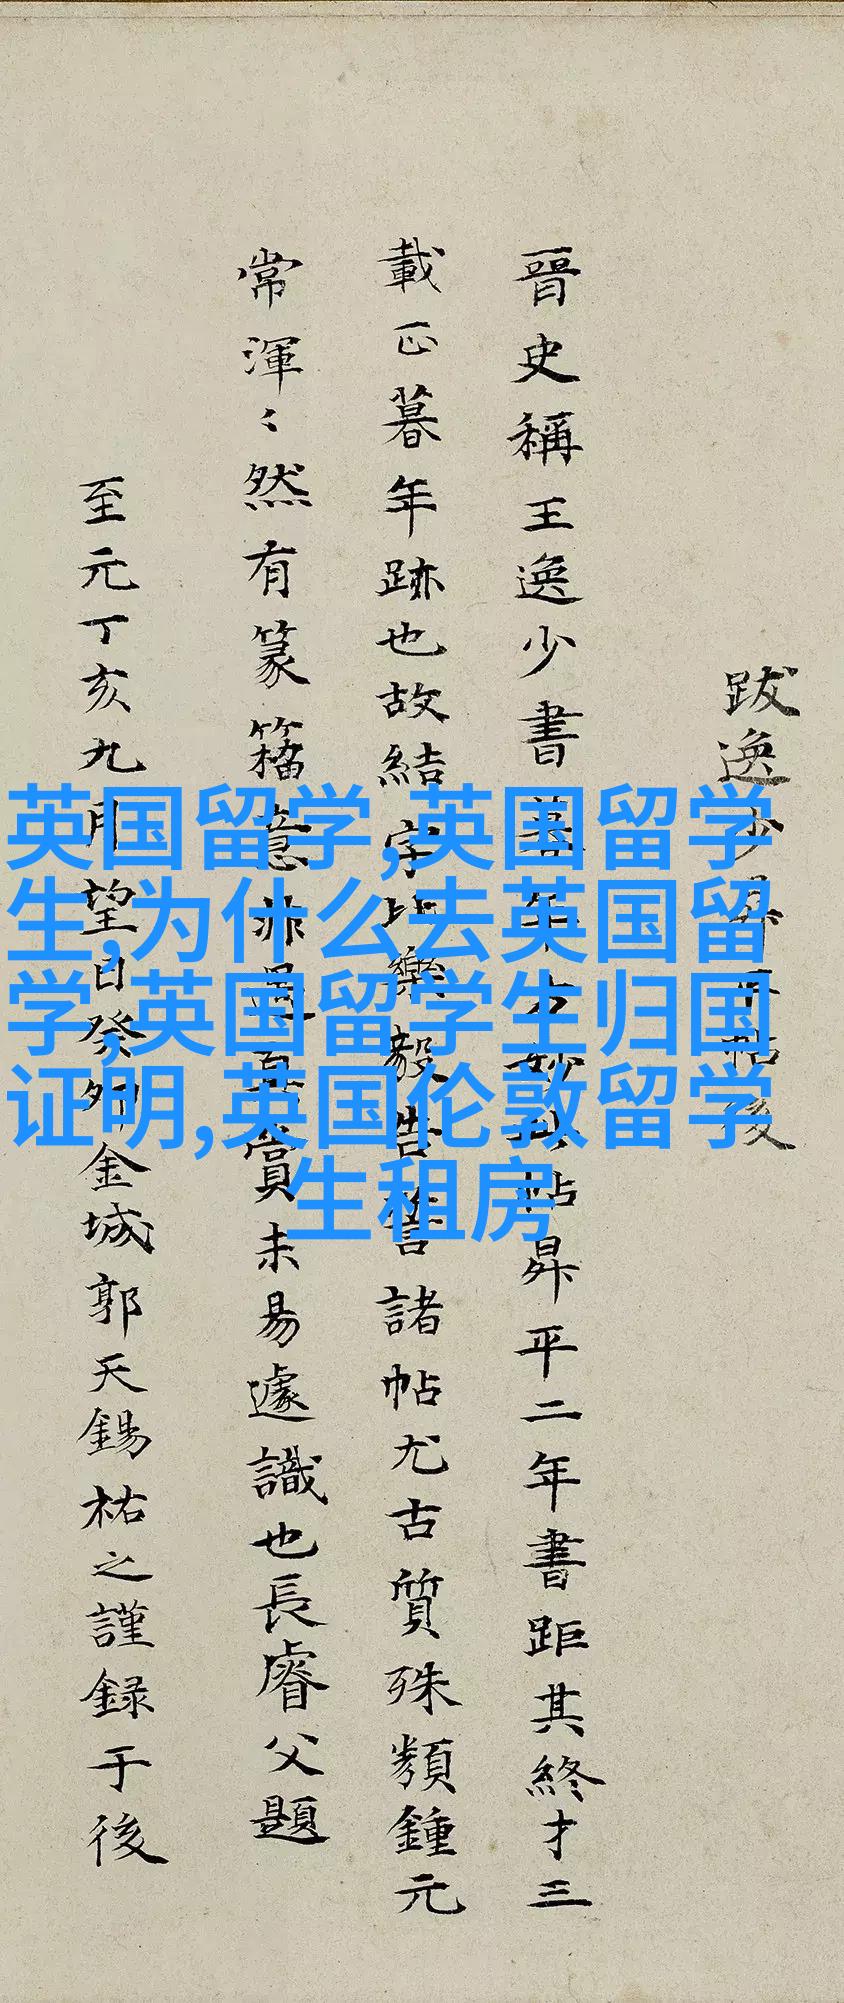 跋逸少昇平帖後
晉史稱王逸少書暮年方妙此帖昇平二年書距其終才三
載正暮年跡也故結字比樂毅告誓諸帖尤古質殊類鍾元
常渾〻然有篆籀意非遇真賞未易遽識也長睿父題
至元丁亥九月望日癸卯金城郭天錫祐之謹録于後
英国留学,英国留学
生,为什么去英国留
学,英国留学生归国
证明,英国伦敦留学
生租房